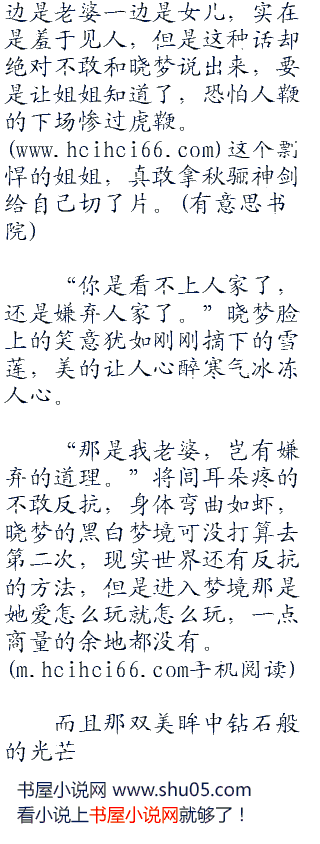 边是老婆一边是女儿，实在
是羞于见人，但是这种话却
绝对不敢和晓梦说出来，要
是让姐姐知道了，恐怕人鞭
的下场惨过虎鞭。
(www.hcihci66.com)这个剽
悍的姐姐，真敢拿秋骊神剑
给自己切了片。(有意思书
院)
“你是看不上人家了，
还是嫌弃人家了。”晓梦脸
上的笑意犹如刚刚摘下的雪
莲，美的让人心醉寒气冰冻
人心。
“那是我老婆，岂有嫌
弃的道理。”将闾耳朵疼的
不敢反抗，身体弯曲如虾，
晓梦的黑白梦境可没打算去
第二次，现实世界还有反抗
的方法，但是进入梦境那是
她爱怎么玩就怎么玩，一点
商量的余地都没有。
(m.hcihci66.com手机阅读)
而且那双美眸中钻石般
的光芒
书屋小说网 www.shu05.com
看小说上书屋小说网就够了！